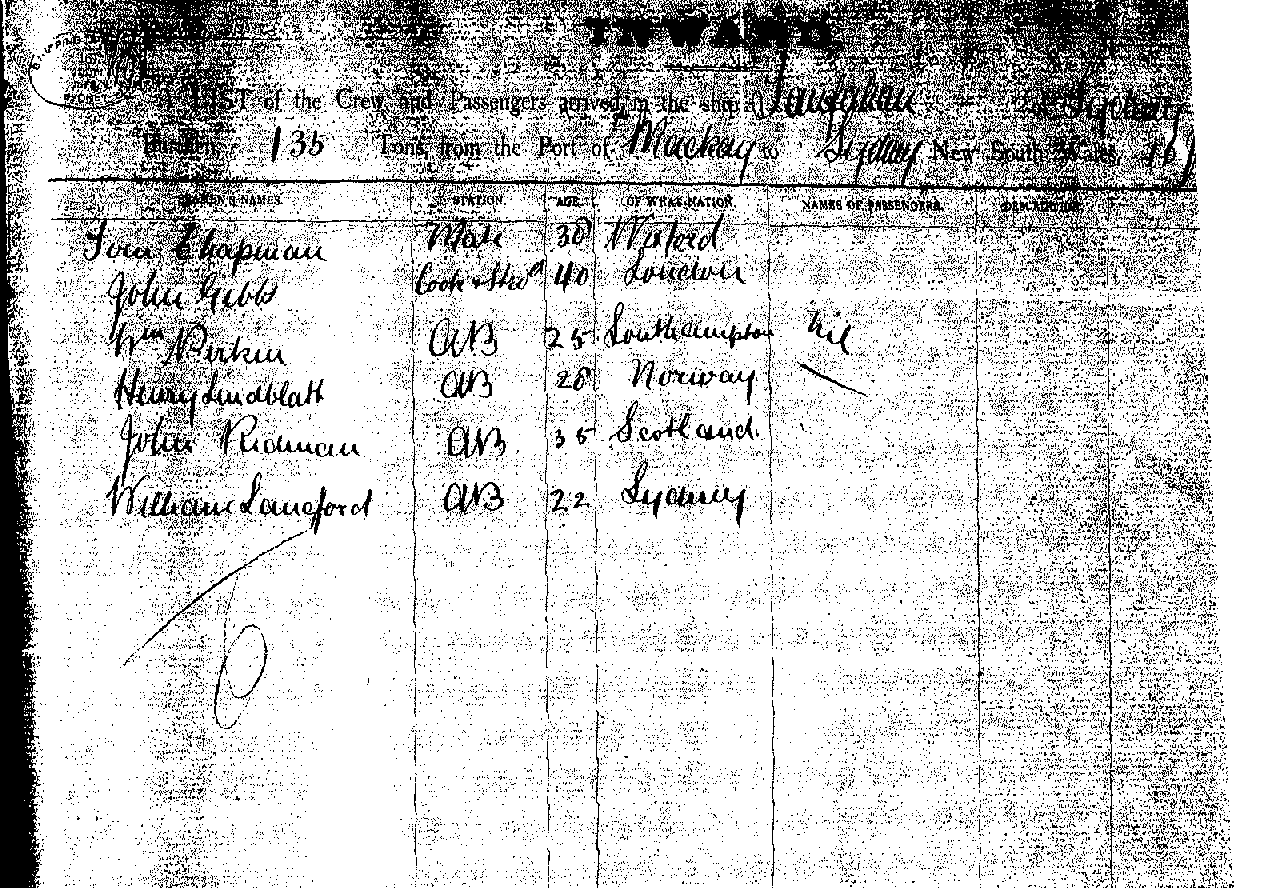 INWARD.
LIST of the Crew and Passengers arrived in the ship of Sydney
Burthen 135 Tons, from the Port of Mackay to Sydney New South Wales,
SEAMEN'S NAMES. STATION. AGE. OF WHAT NATION. NAMES OF PASSENGERS. DESCRIPTION.
Chapman Mate 30 Wexford
John Gibbs Cook & Stewd 40 London
Wm Perkin AB 25 Southampton Nil
Henry Lindblatt AB 28 Norway
John Ridman AB 35 Scotland.
William Langford AB 22 Sydney
6